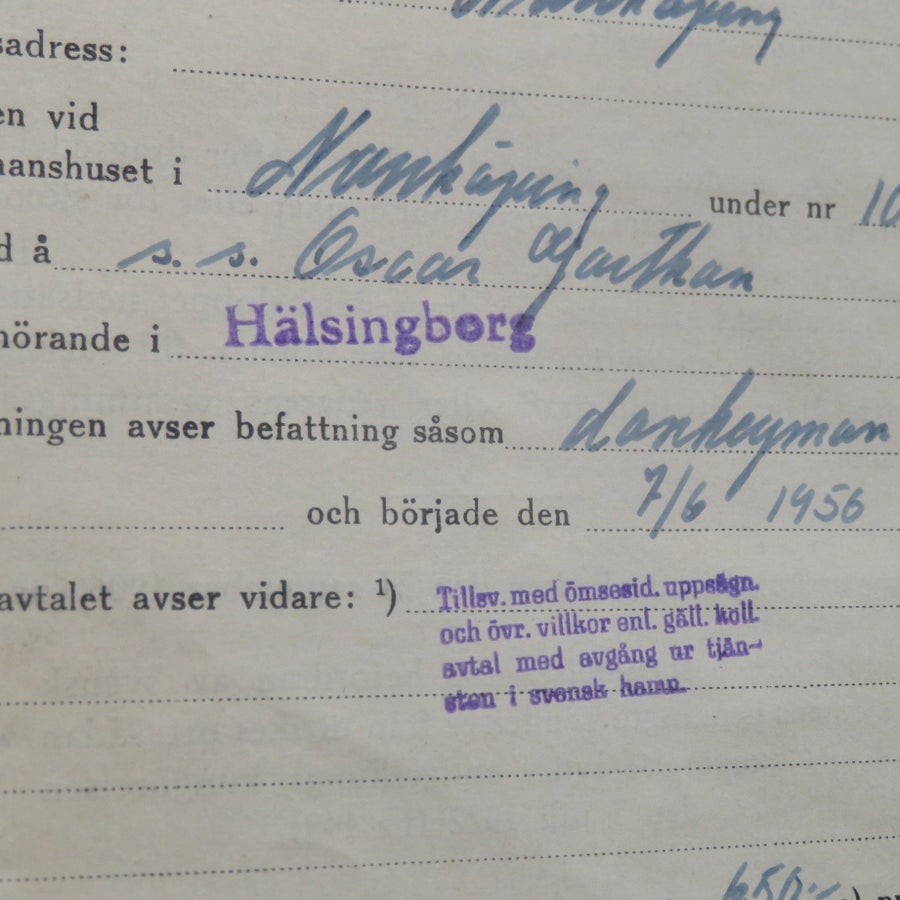 sadress:
en vid
manshuset i Norrköping under nr 10
d å s. s. Oscar Gorthon
hörande i Hälsingborg
ningen avser befattning såsom donkeyman
och började den 7/6 1956
avtalet avser vidare: ¹) Tillsv. med ömsesid. uppsägn.
och övr. villkor enl. gäll. koll.
avtal med avgång ur tjän-
sten i svensk hamn.
650:-